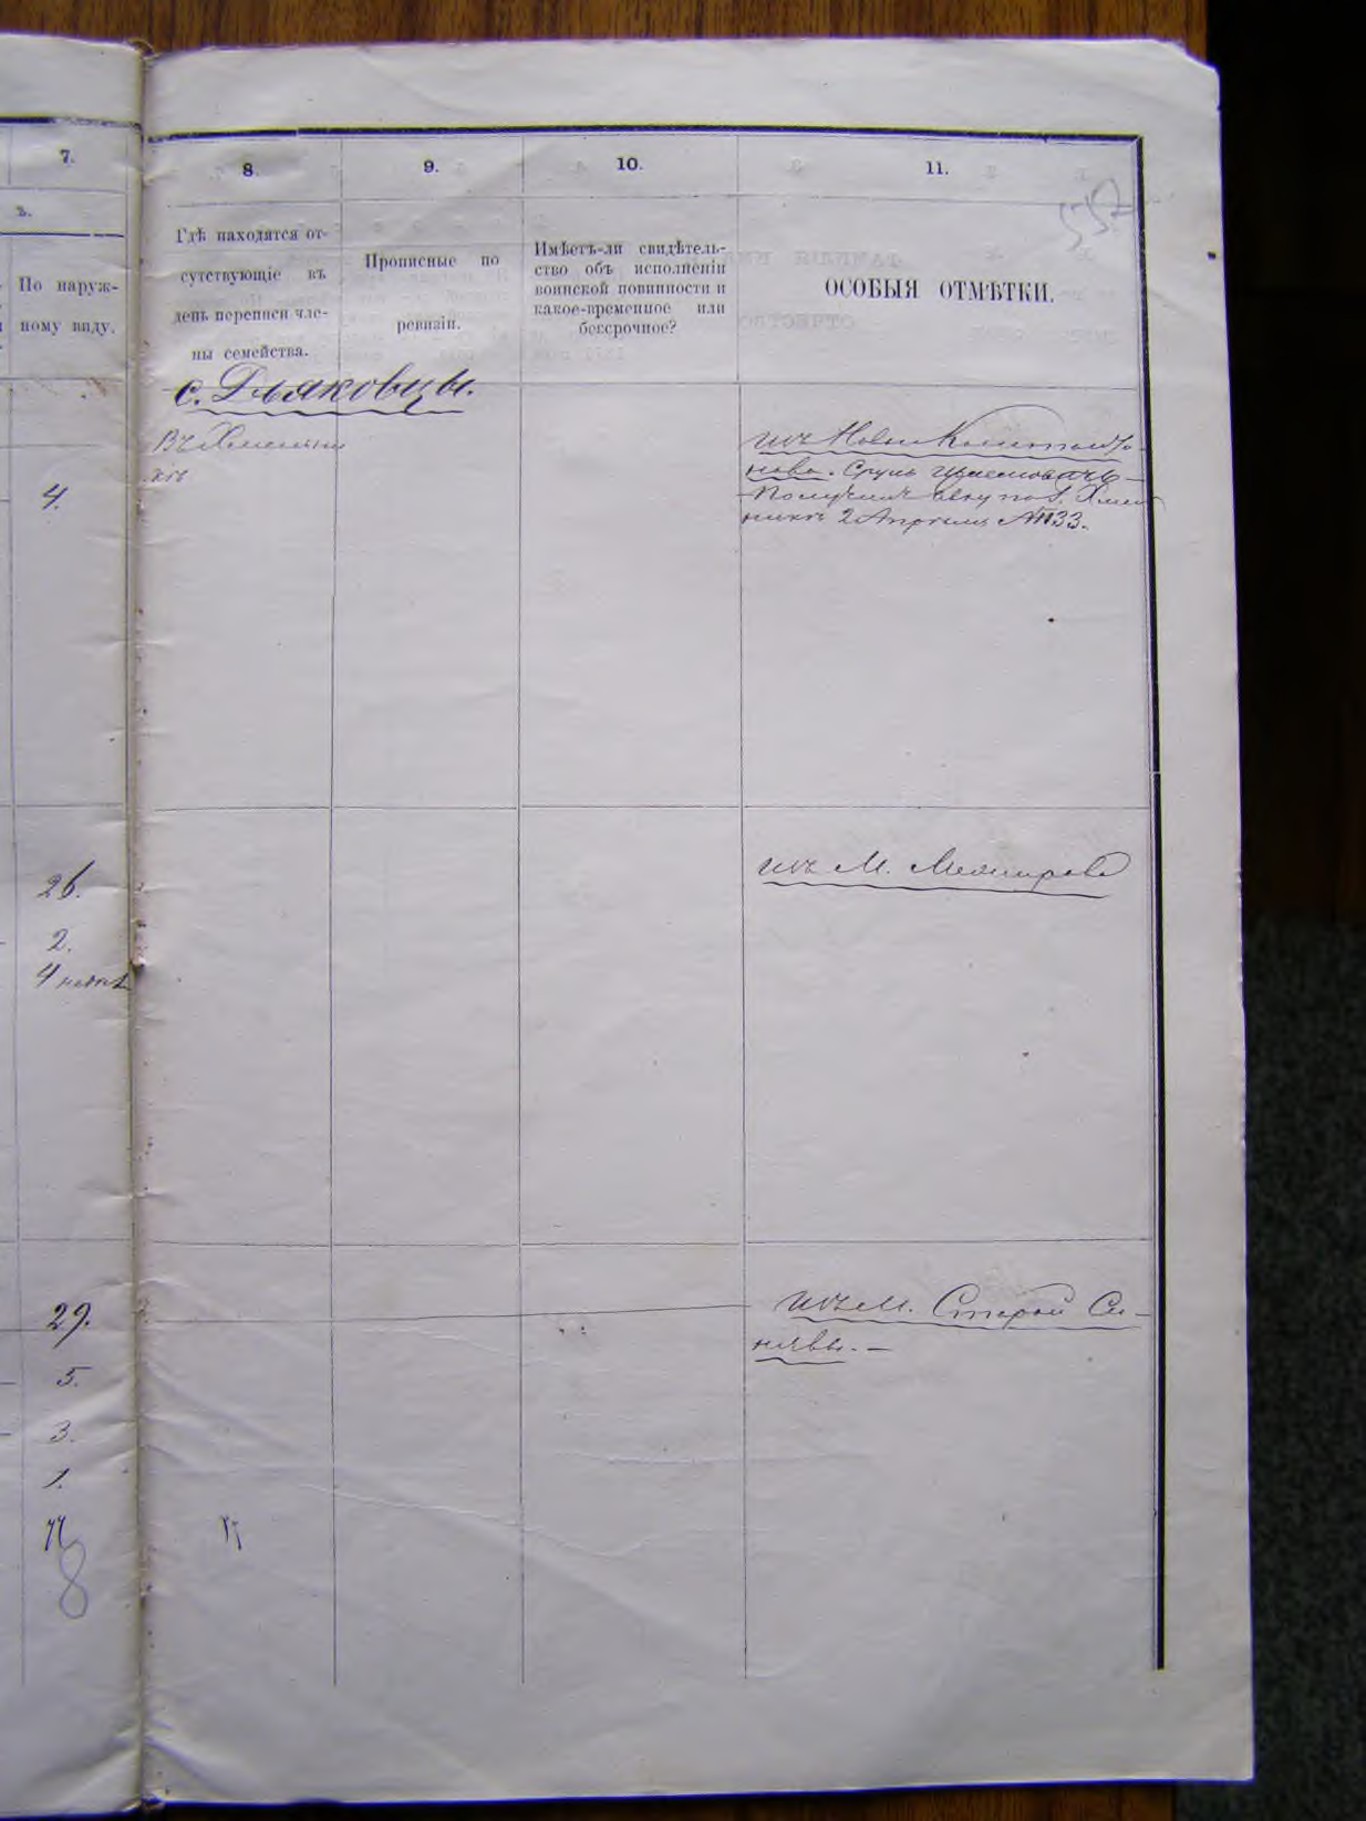 7.
ъ.
По наруж-
ному виду.
8.
9.
10.
11.
552
Гдѣ находятся от-
сутствующіе къ
день переписи чле-
ны семейства.
Прописные по
ревизіи.
Имѣетъ-ли свидѣтель-
ство объ исполненіи
воинской повинности и
какое-временное или
безсрочное?
ОСОБЫЯ ОТМѢТКИ.
с. Дьяковцы.
Въ Хмельни
кѣ
4.
изъ Новои Константи-
нова. Сруль
Получилъ по г. Хмель
никъ 2 Апрѣля № 33.
26.
2.
4 недѣл
изъ М. Межирова
29.
5.
3.
1.
изъ м. Старой Си-
нявы. —
8